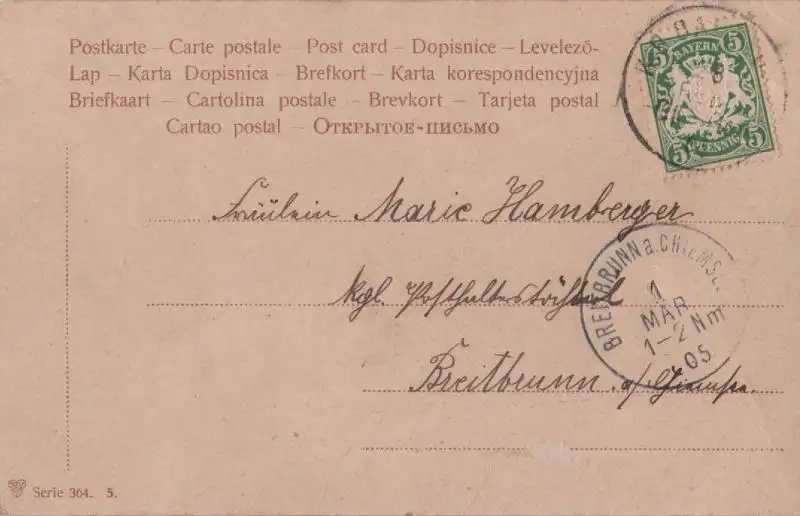 Postkarte – Carte postale – Post card – Dopisnice – Levelező-
Lap – Karta Dopisnica – Brefkort – Karta korespondencyjna
Briefkaart – Cartolina postale – Brevkort – Tarjeta postal
Cartao postal – Открытое-письмо
5 BAYERN 5
5 PFENNIG 5
Fräulein Marie Hamberger
kgl. Posthalterstöchterl
BREITBRUNN a. CHIEMSEE
1
MAR
1–2 Nm
05
Breitbrunn a/
Serie 364. 5.